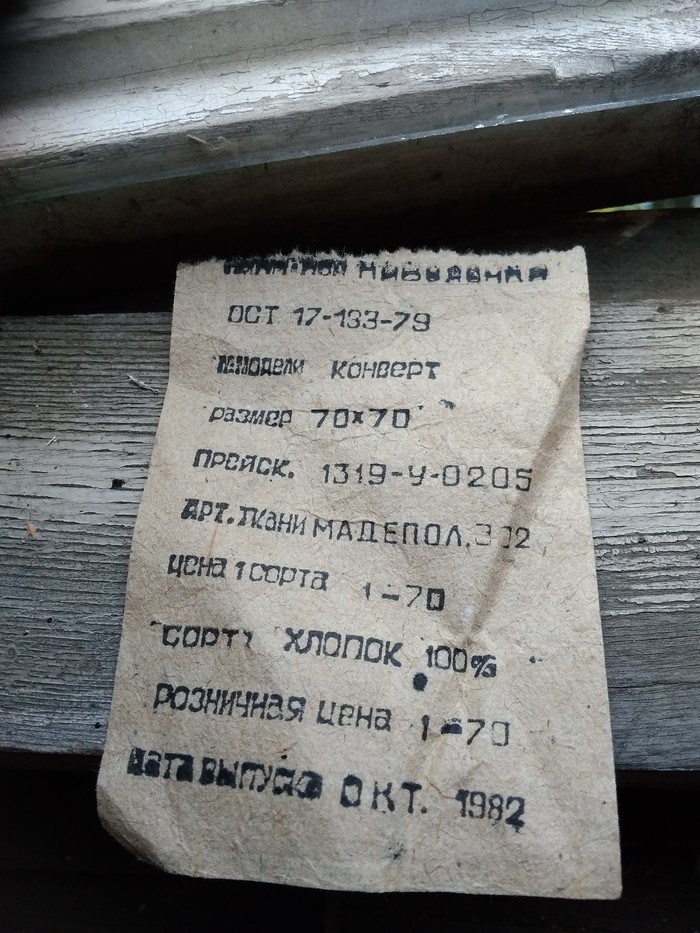 НАВОЛОЧКА
ОСТ 17-133-79
модели КОНВЕРТ
размер 70х70
прейск. 1319-У-0205
АРТ. ткани МАДЕПОЛ.
цена 1 сорта 1-70
СОРТ ХЛОПОК 100%
РОЗНИЧНАЯ цена 1-70
ДАТА ВЫПУСКА ОКТ. 1982